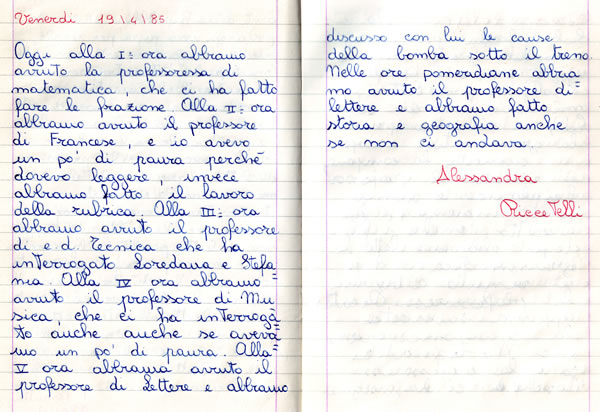 Venerdi 19/4/85
Oggi alla I= ora abbiamo
avvuto la professoressa di
matematica, che ci ha fatto
fare le frazione. Alla II= ora
abbiamo avvuto il professore
di Francese, e io avevo
un po' di paura perché
dovevo leggere, invece
abbiamo fatto il lavoro
della rubrica. Alla III= ora
abbiamo avvuto il professore
di e d. Tecnica che ha
interrogato Loredana e Stefa=
nia. Alla IV ora abbiamo
avvuto il professore di Mu=
sica, che ci ha interroga=
to anche anche se aveva=
mo un po' di paura. Alla=
V ora abbiama avvuto il
professore di Lettere e abbiamo
discusso con lui le cause
della bomba sotto il treno.
Nelle ore pomeridiane abbia=
mo avuto il professore di=
lettere e abbiamo fatto
storia e geografia anche
se non ci andava.
Alessandra
PucceTelli